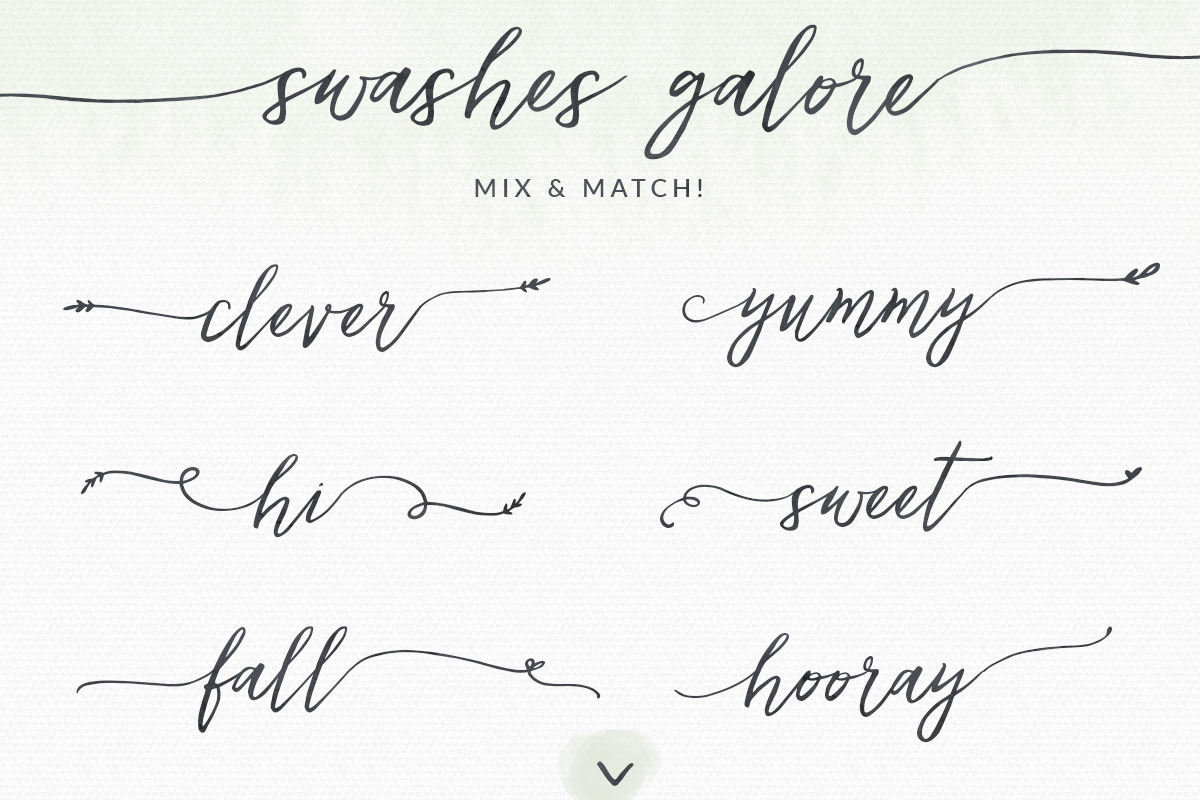 swashes galore
MIX & MATCH!
clever
yummy
hi
sweet
fall
hooray